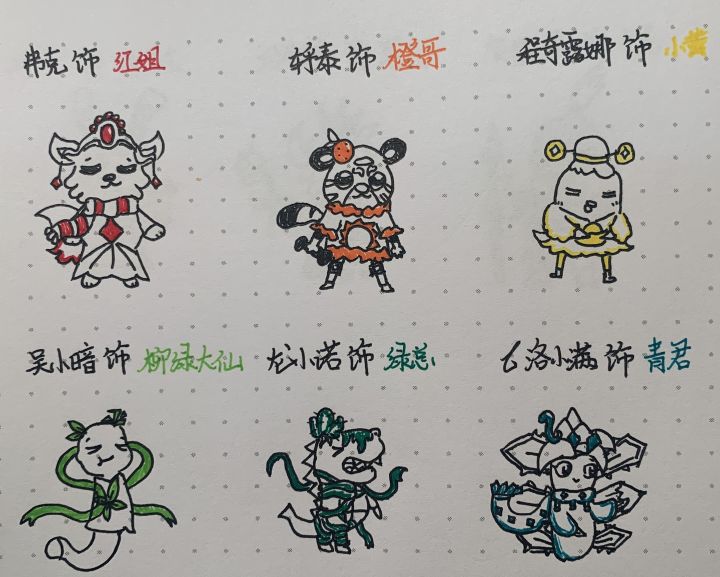 弗克 饰 红姐 轩泰 饰 橙哥 程奇露娜 饰 小黄
吴小暗 饰 柳绿大仙 龙小诺 饰 绿总 飞洛小满 饰 青君